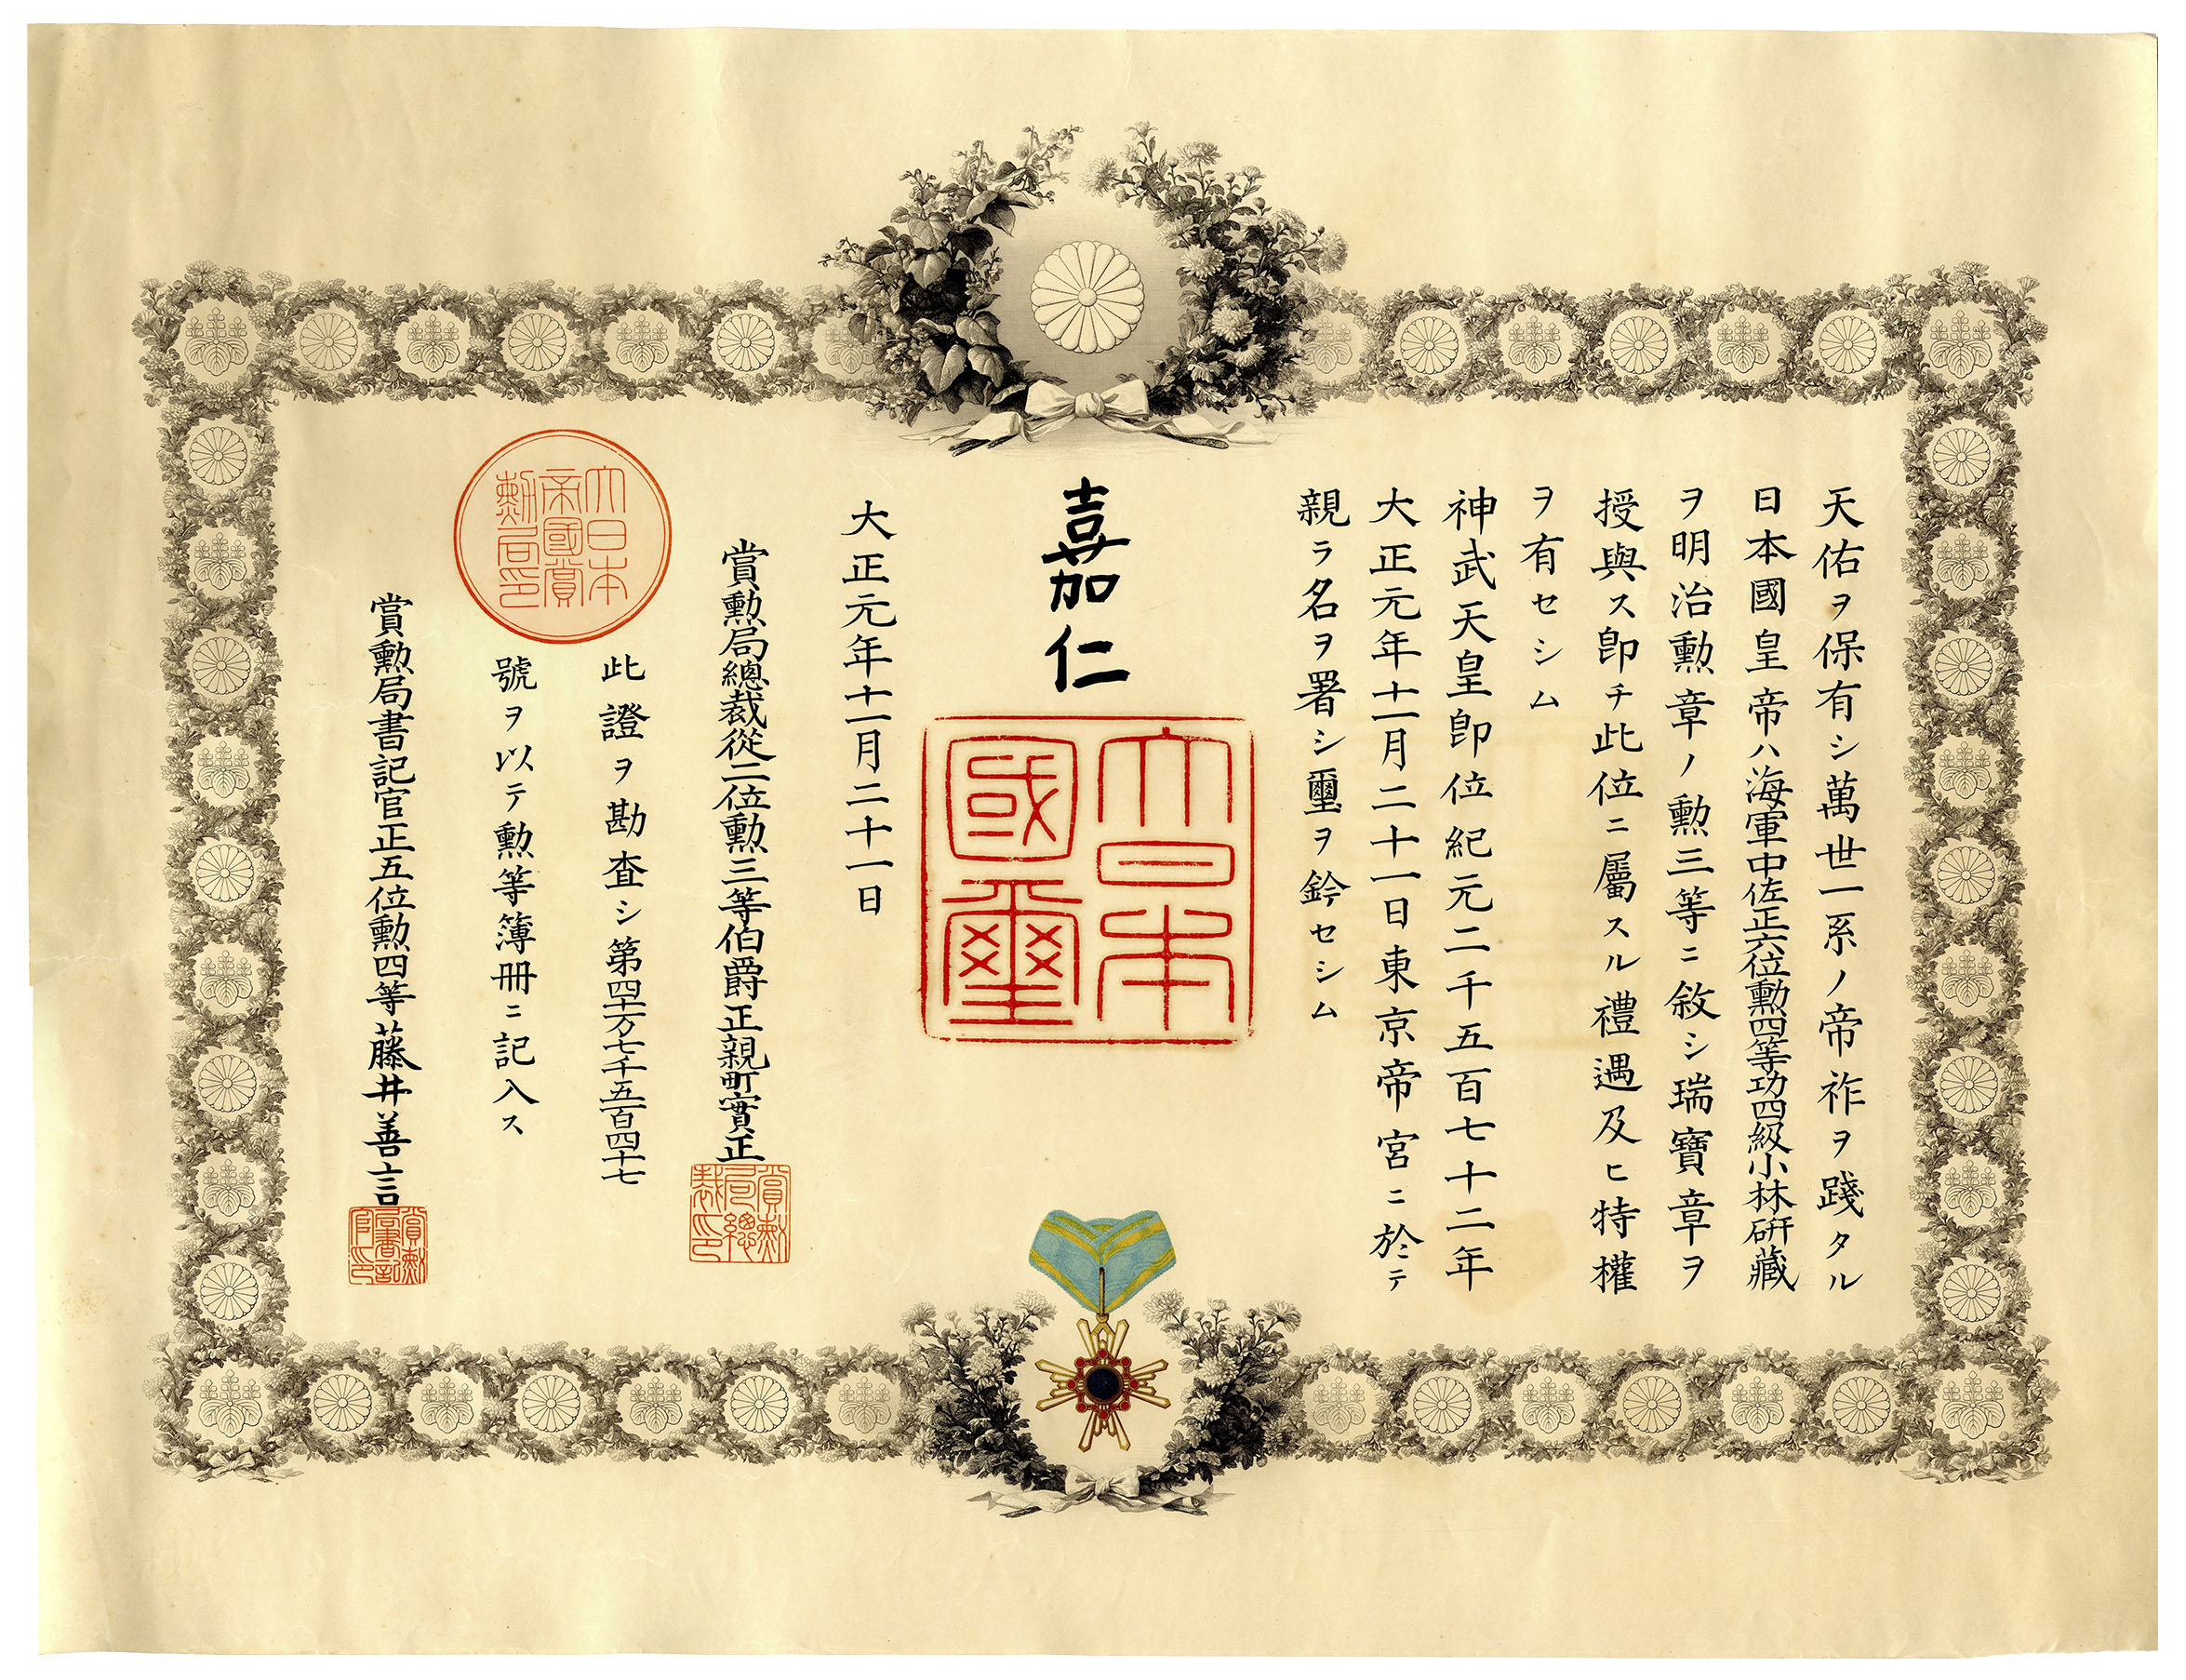 天佑ヲ保有シ萬世一系ノ帝祚ヲ踐タル
日本國皇帝ハ海軍中佐正六位勲四等功四級小林硏藏
ヲ明治勲章ノ勲三等ニ敘シ瑞寶章ヲ
授與ス卽チ此位ニ屬スル禮遇及ヒ特權
ヲ有セシム
神武天皇卽位紀元二千五百七十二年
大正元年十一月二十一日東京帝宮ニ於テ
親ラ名ヲ署シ璽ヲ鈐セシム
嘉仁
大日本
國璽
大正元年十一月二十一日
賞勲局總裁從二位勲三等伯爵正親町實正
賞勲局總裁印
大日本帝國賞勲局印
此證ヲ勘査シ第四十一万七千五百四十七
號ヲ以テ勲等簿冊ニ記入ス
賞勲局書記官正五位勲四等藤井善言
賞勲局書記官印